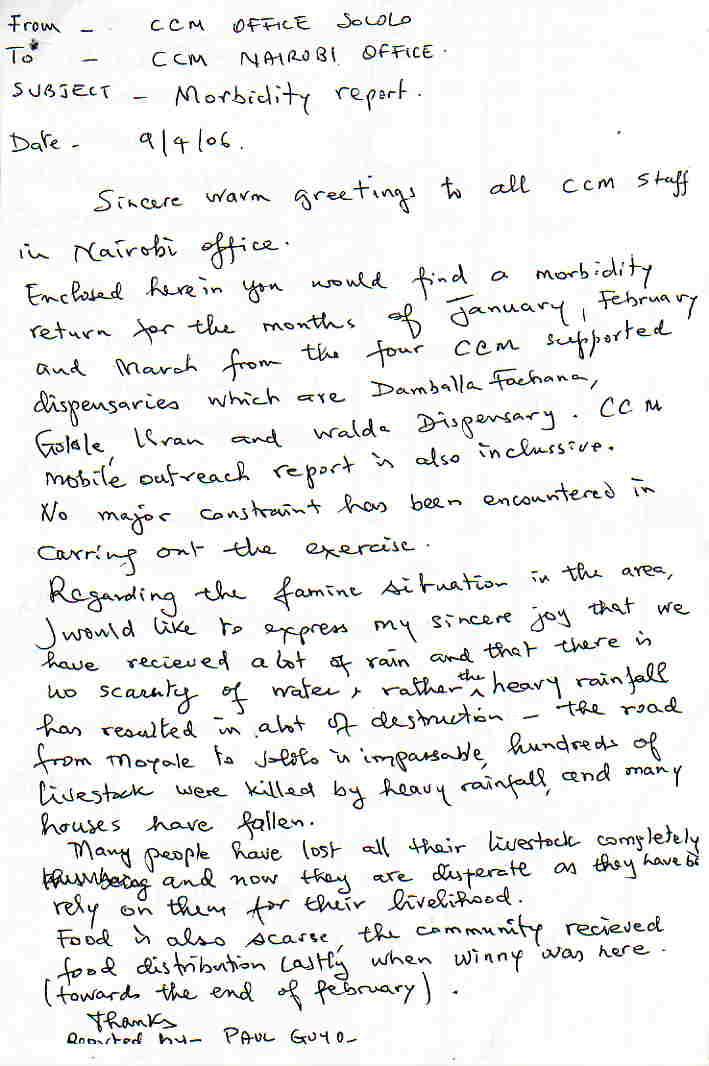 From - CCM OFFICE SOLOLO
To - CCM NAIROBI OFFICE.
SUBJECT - Morbidity report.
Date - 9/4/06.
Sincere warm greetings to all CCM staff
in Nairobi office.
Enclosed herein you would find a morbidity
return for the months of January, February
and March from the four CCM supported
dispensaries which are Damballa Fachana,
Golole, Uran and Walda Dispensary. CCM
mobile outreach report is also inclussive.
No major constraint has been encountered in
carring out the exercise.
Regarding the famine situation in the area,
I would like to express my sincere joy that we
have recieved alot of rain and that there is
no scarsity of water, rather the heavy rainfall
has resulted in alot of destruction - the road
from Moyale to Sololo is impassable, hundreds of
livestock were killed by heavy rainfall, and many
houses have fallen.
Many people have lost all their livestock completely
and now they are disperate as they have to
rely on them for their livelihood.
Food is also scarse, the community recieved
food distribution lastly when winny was here.
(towards the end of february).
Thanks
Reported by - PAUL GUYO -